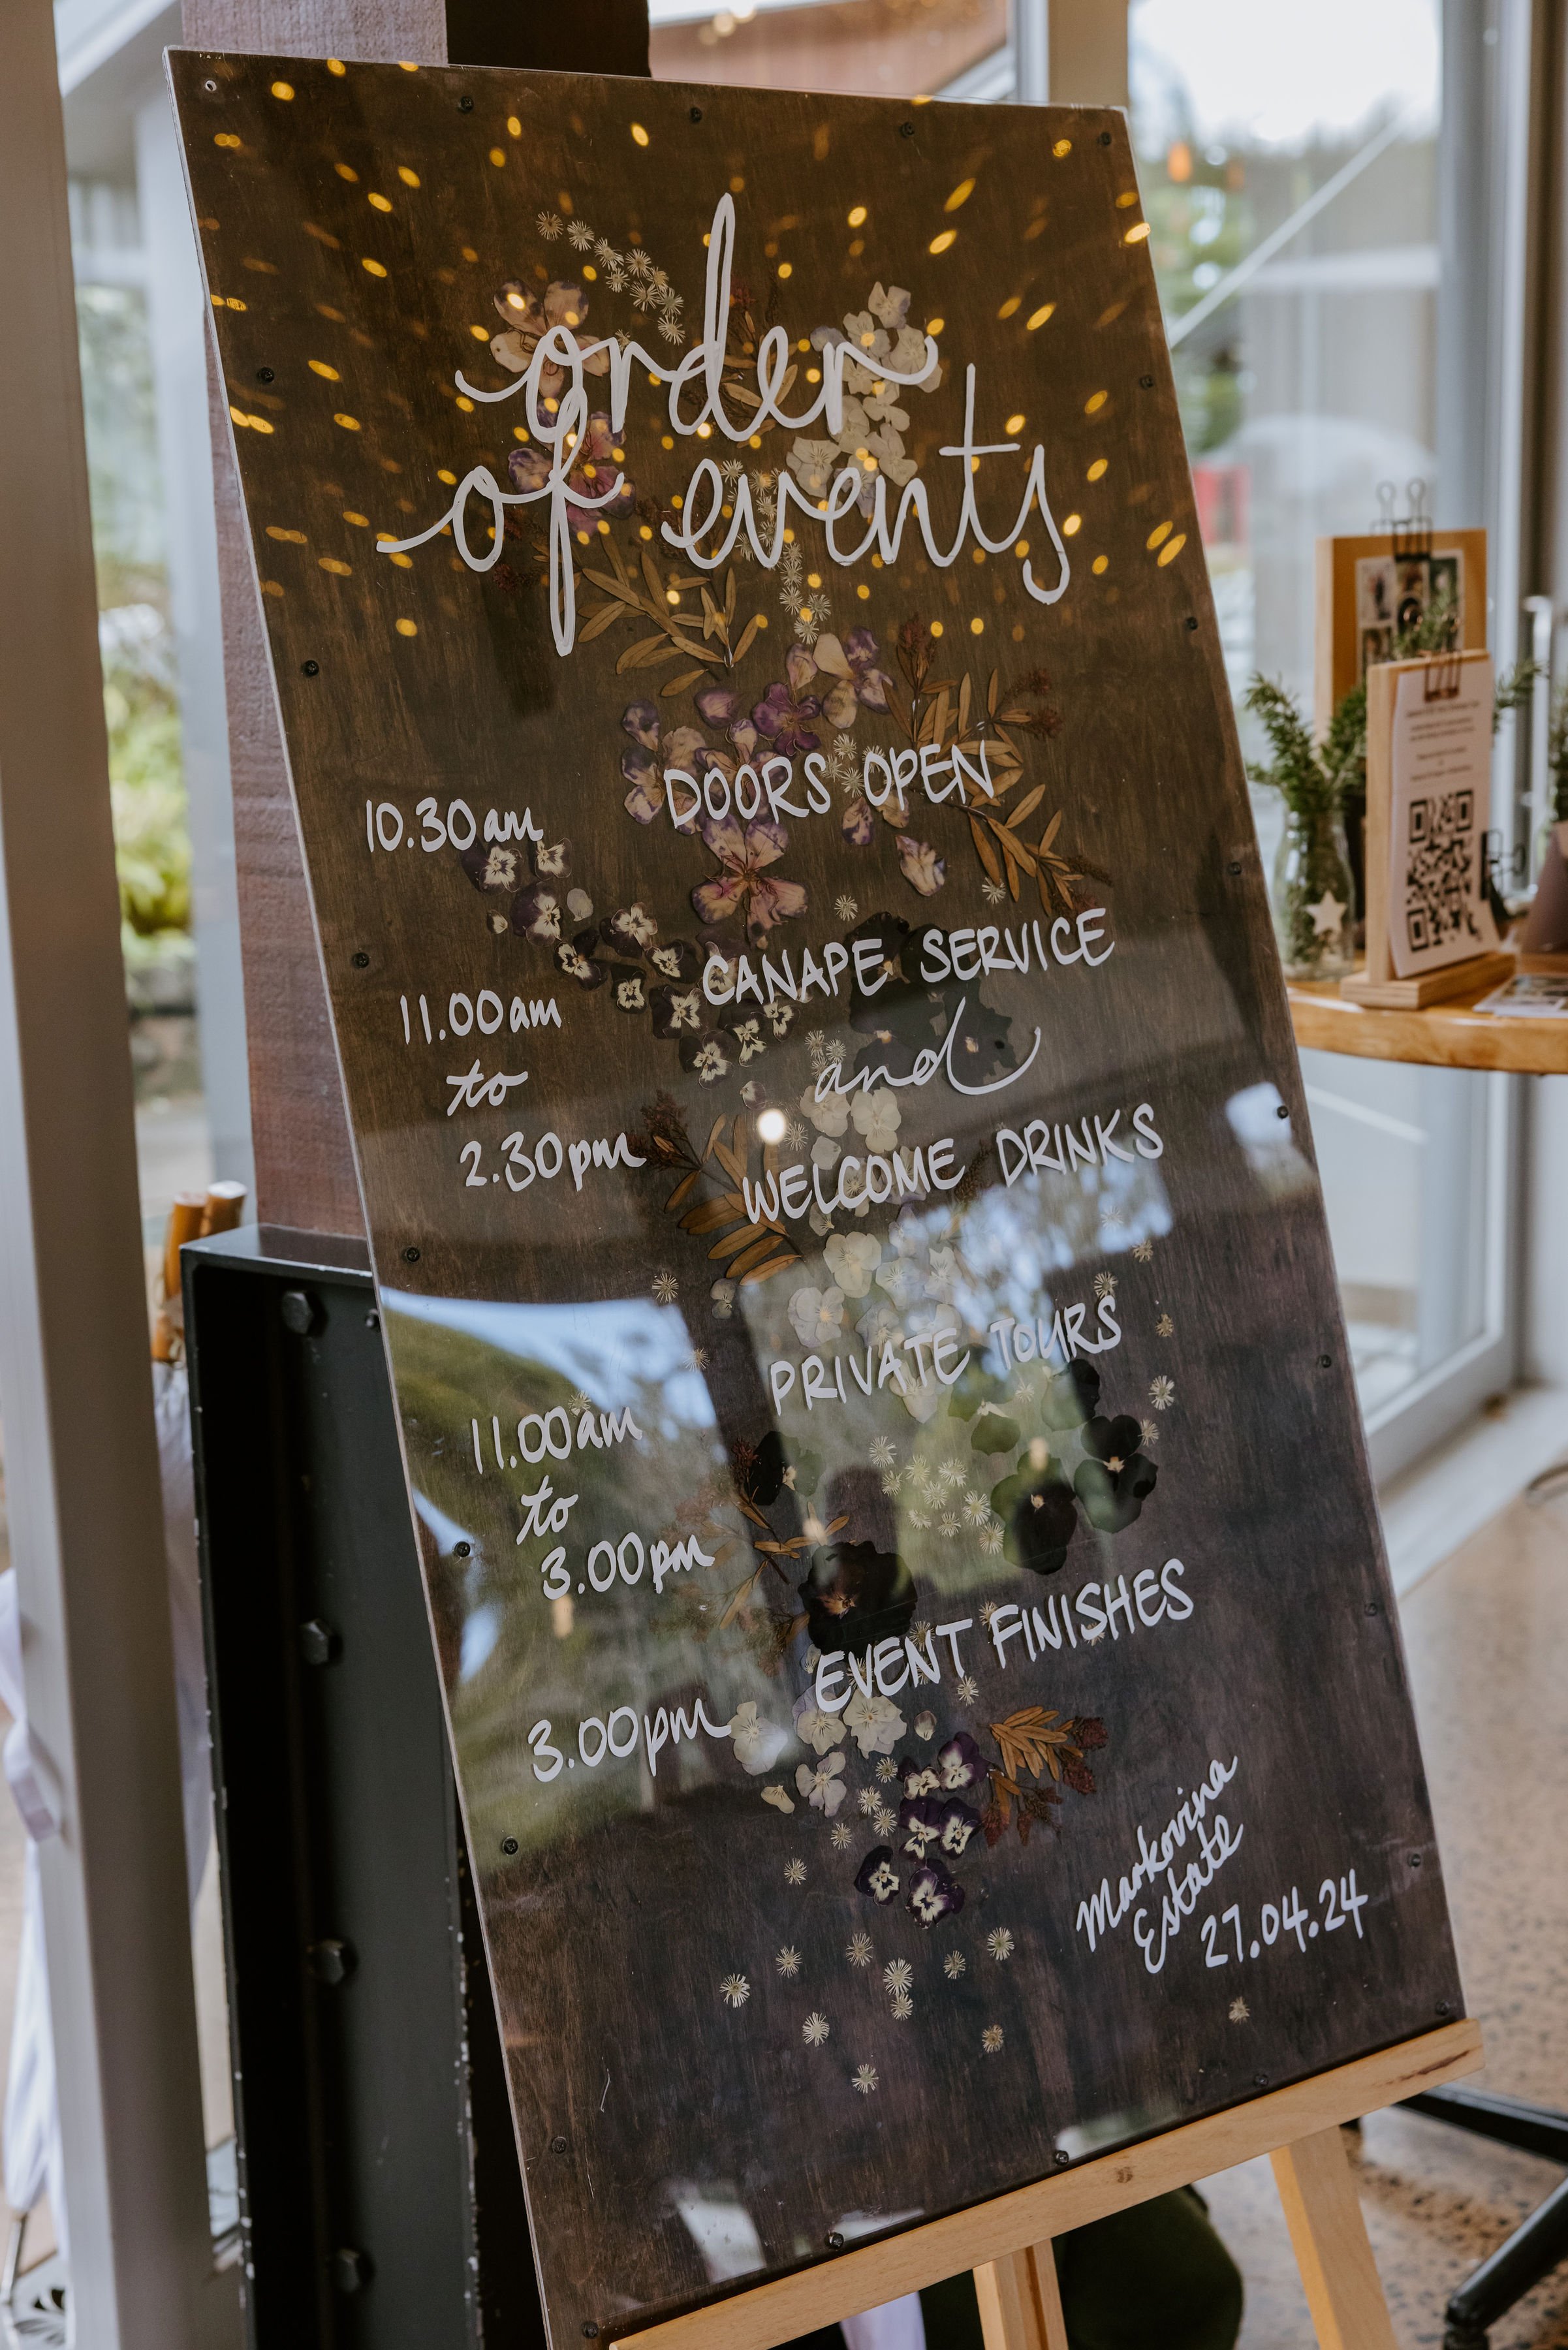 order
of events
10.30am DOORS OPEN
11.00am
to
2.30pm
CANAPE SERVICE
and
WELCOME DRINKS
11.00am
to
3.00pm
PRIVATE TOURS
3.00pm EVENT FINISHES
Markovina
Estate
27.04.24